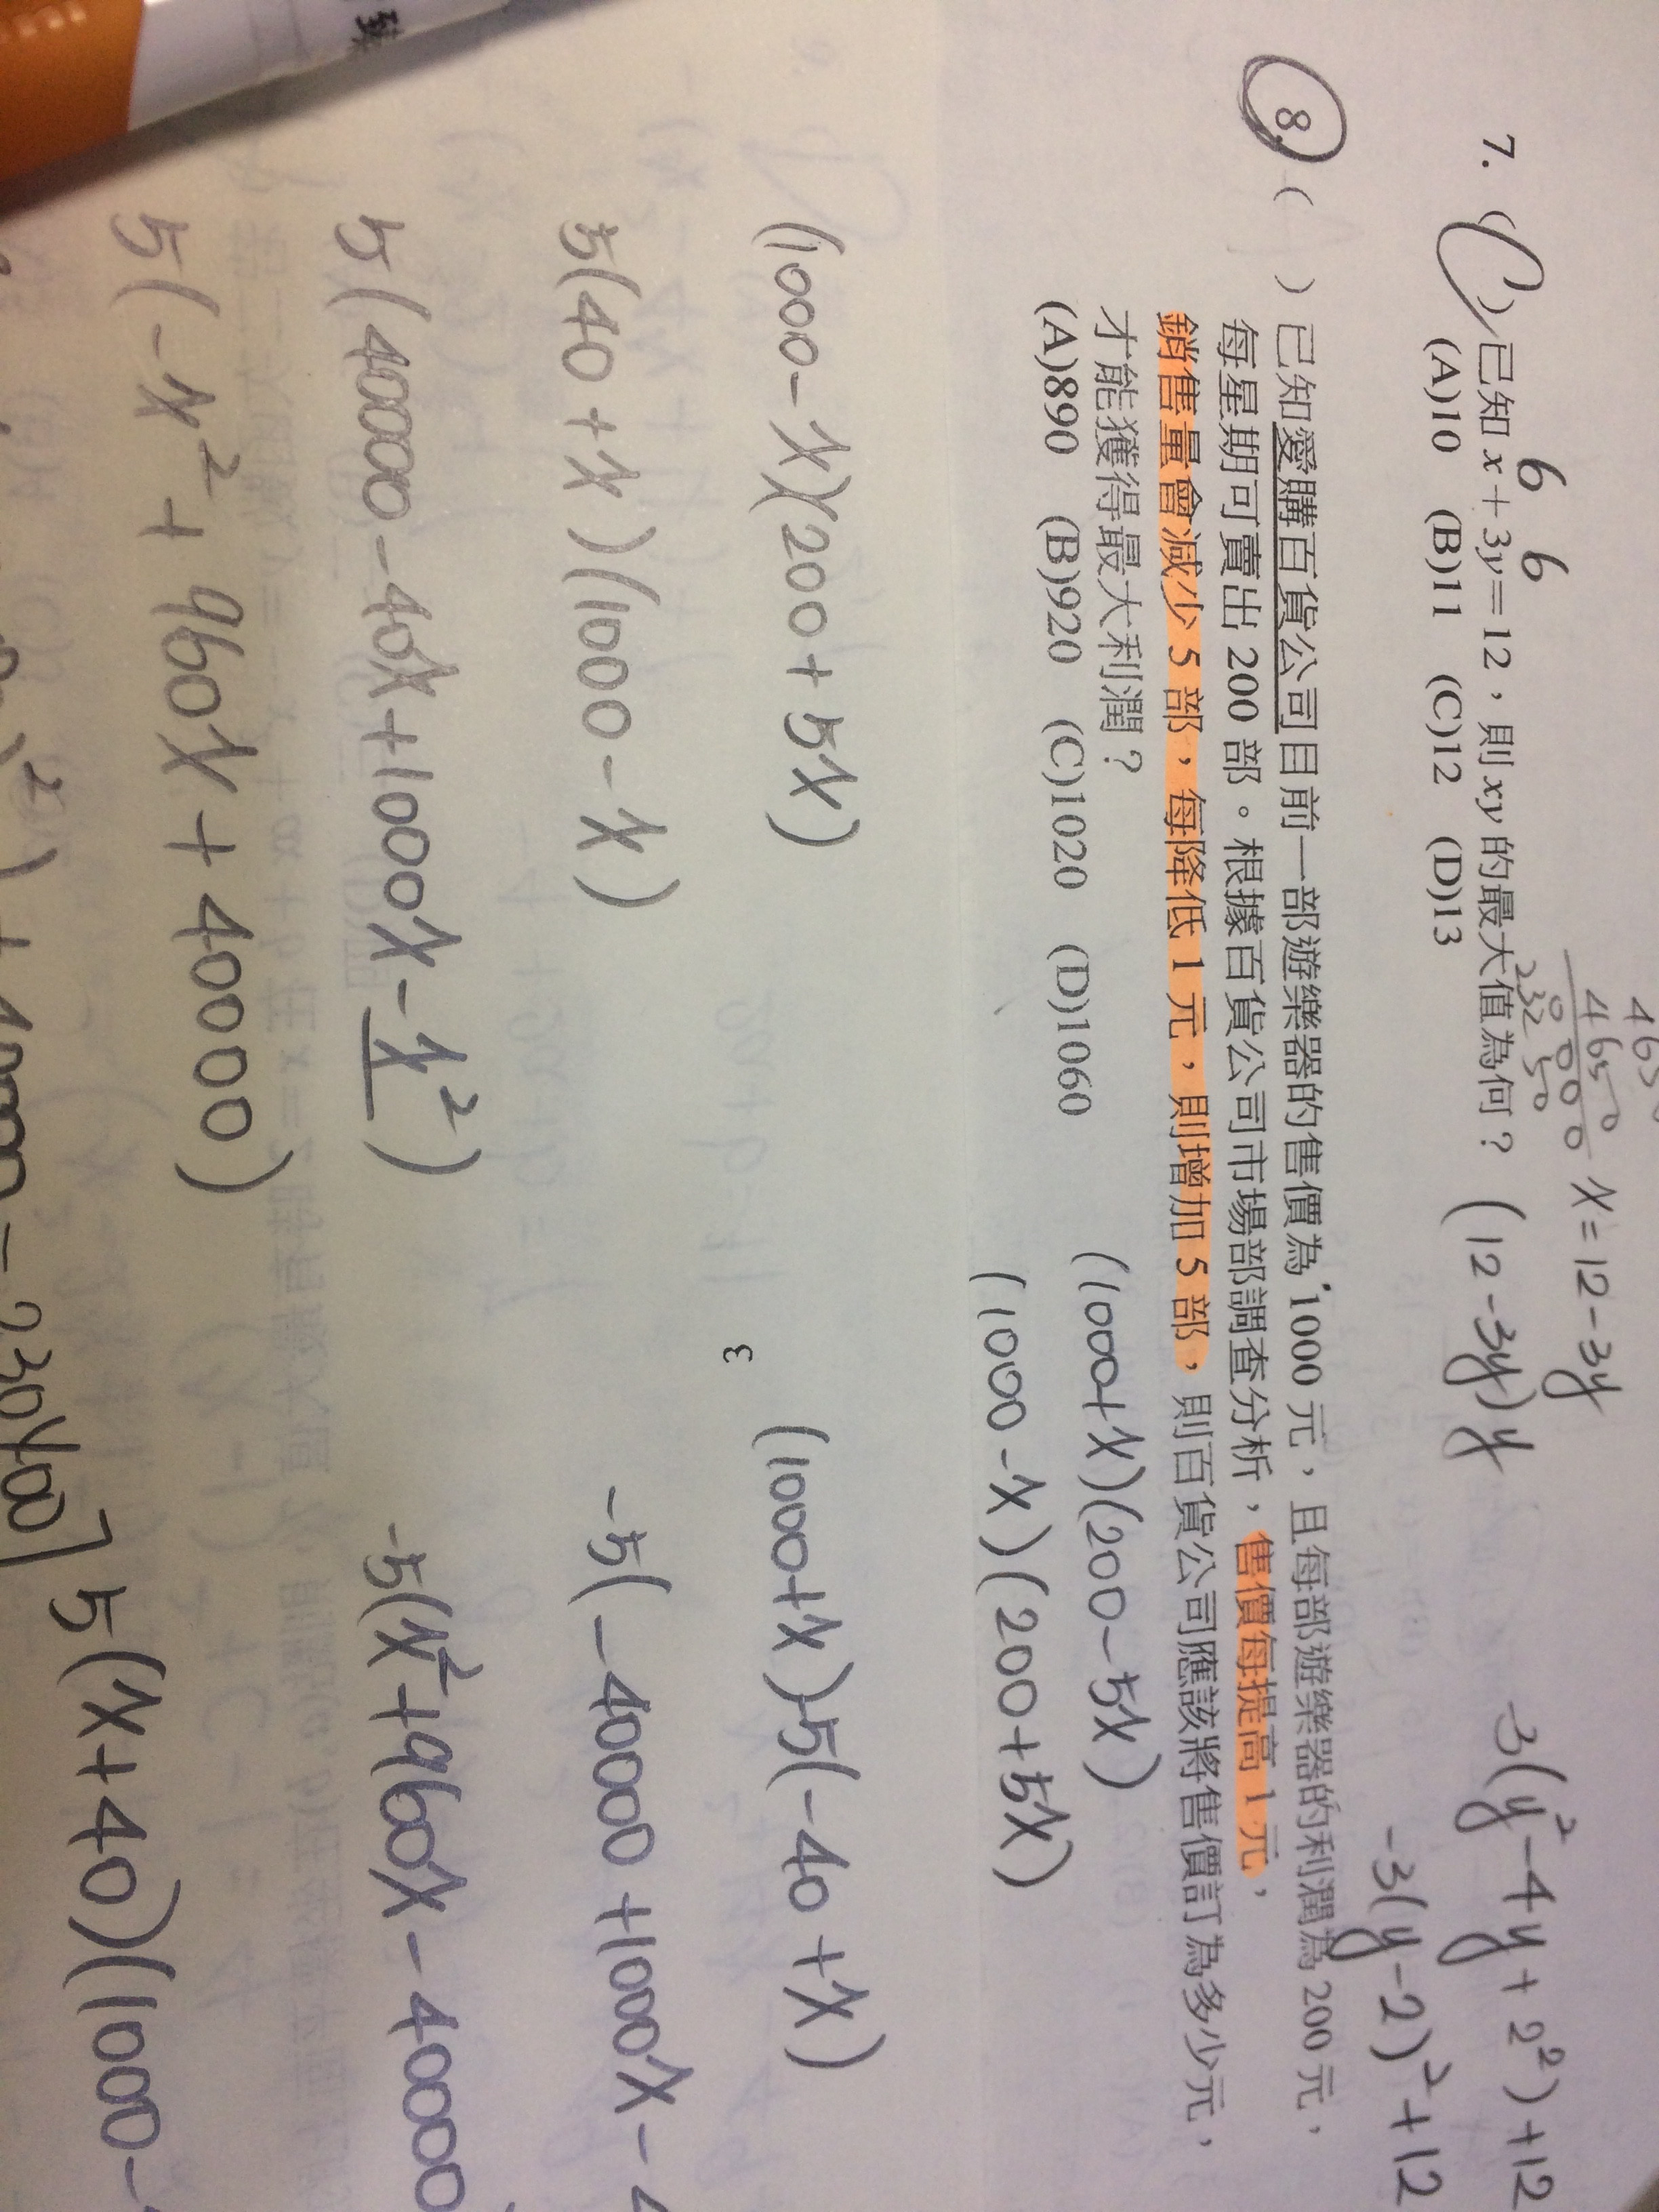 7. ( ) 已知 x+3y=12，則 xy 的最大值為何？
(A)10 (B)11 (C)12 (D)13
6 6
x=12-3y
(12-3y)y
-3(y²-4y+2²)+12
-3(y-2)²+12
8. ( ) 已知愛購百貨公司目前一部遊樂器的售價為 1000 元，且每部遊樂器的利潤為 200 元，
每星期可賣出 200 部。根據百貨公司市場部調查分析，售價每提高 1 元，
銷售量會減少 5 部，每降低 1 元，則增加 5 部，則百貨公司應該將售價訂為多少元，
才能獲得最大利潤？
(A)890 (B)920 (C)1020 (D)1060
(1000+x)(200-5x)
(1000-x)(200+5x)
(1000-x)(200+5x)
5(40+x)(1000-x)
5(40000-40x+1000x-x²)
5(-x²+960x+40000)
3
(1000+x)-5(-40+x)
-5(-40000+1000x-4
-5(x²+960x-40000
5(x+40)(1000-